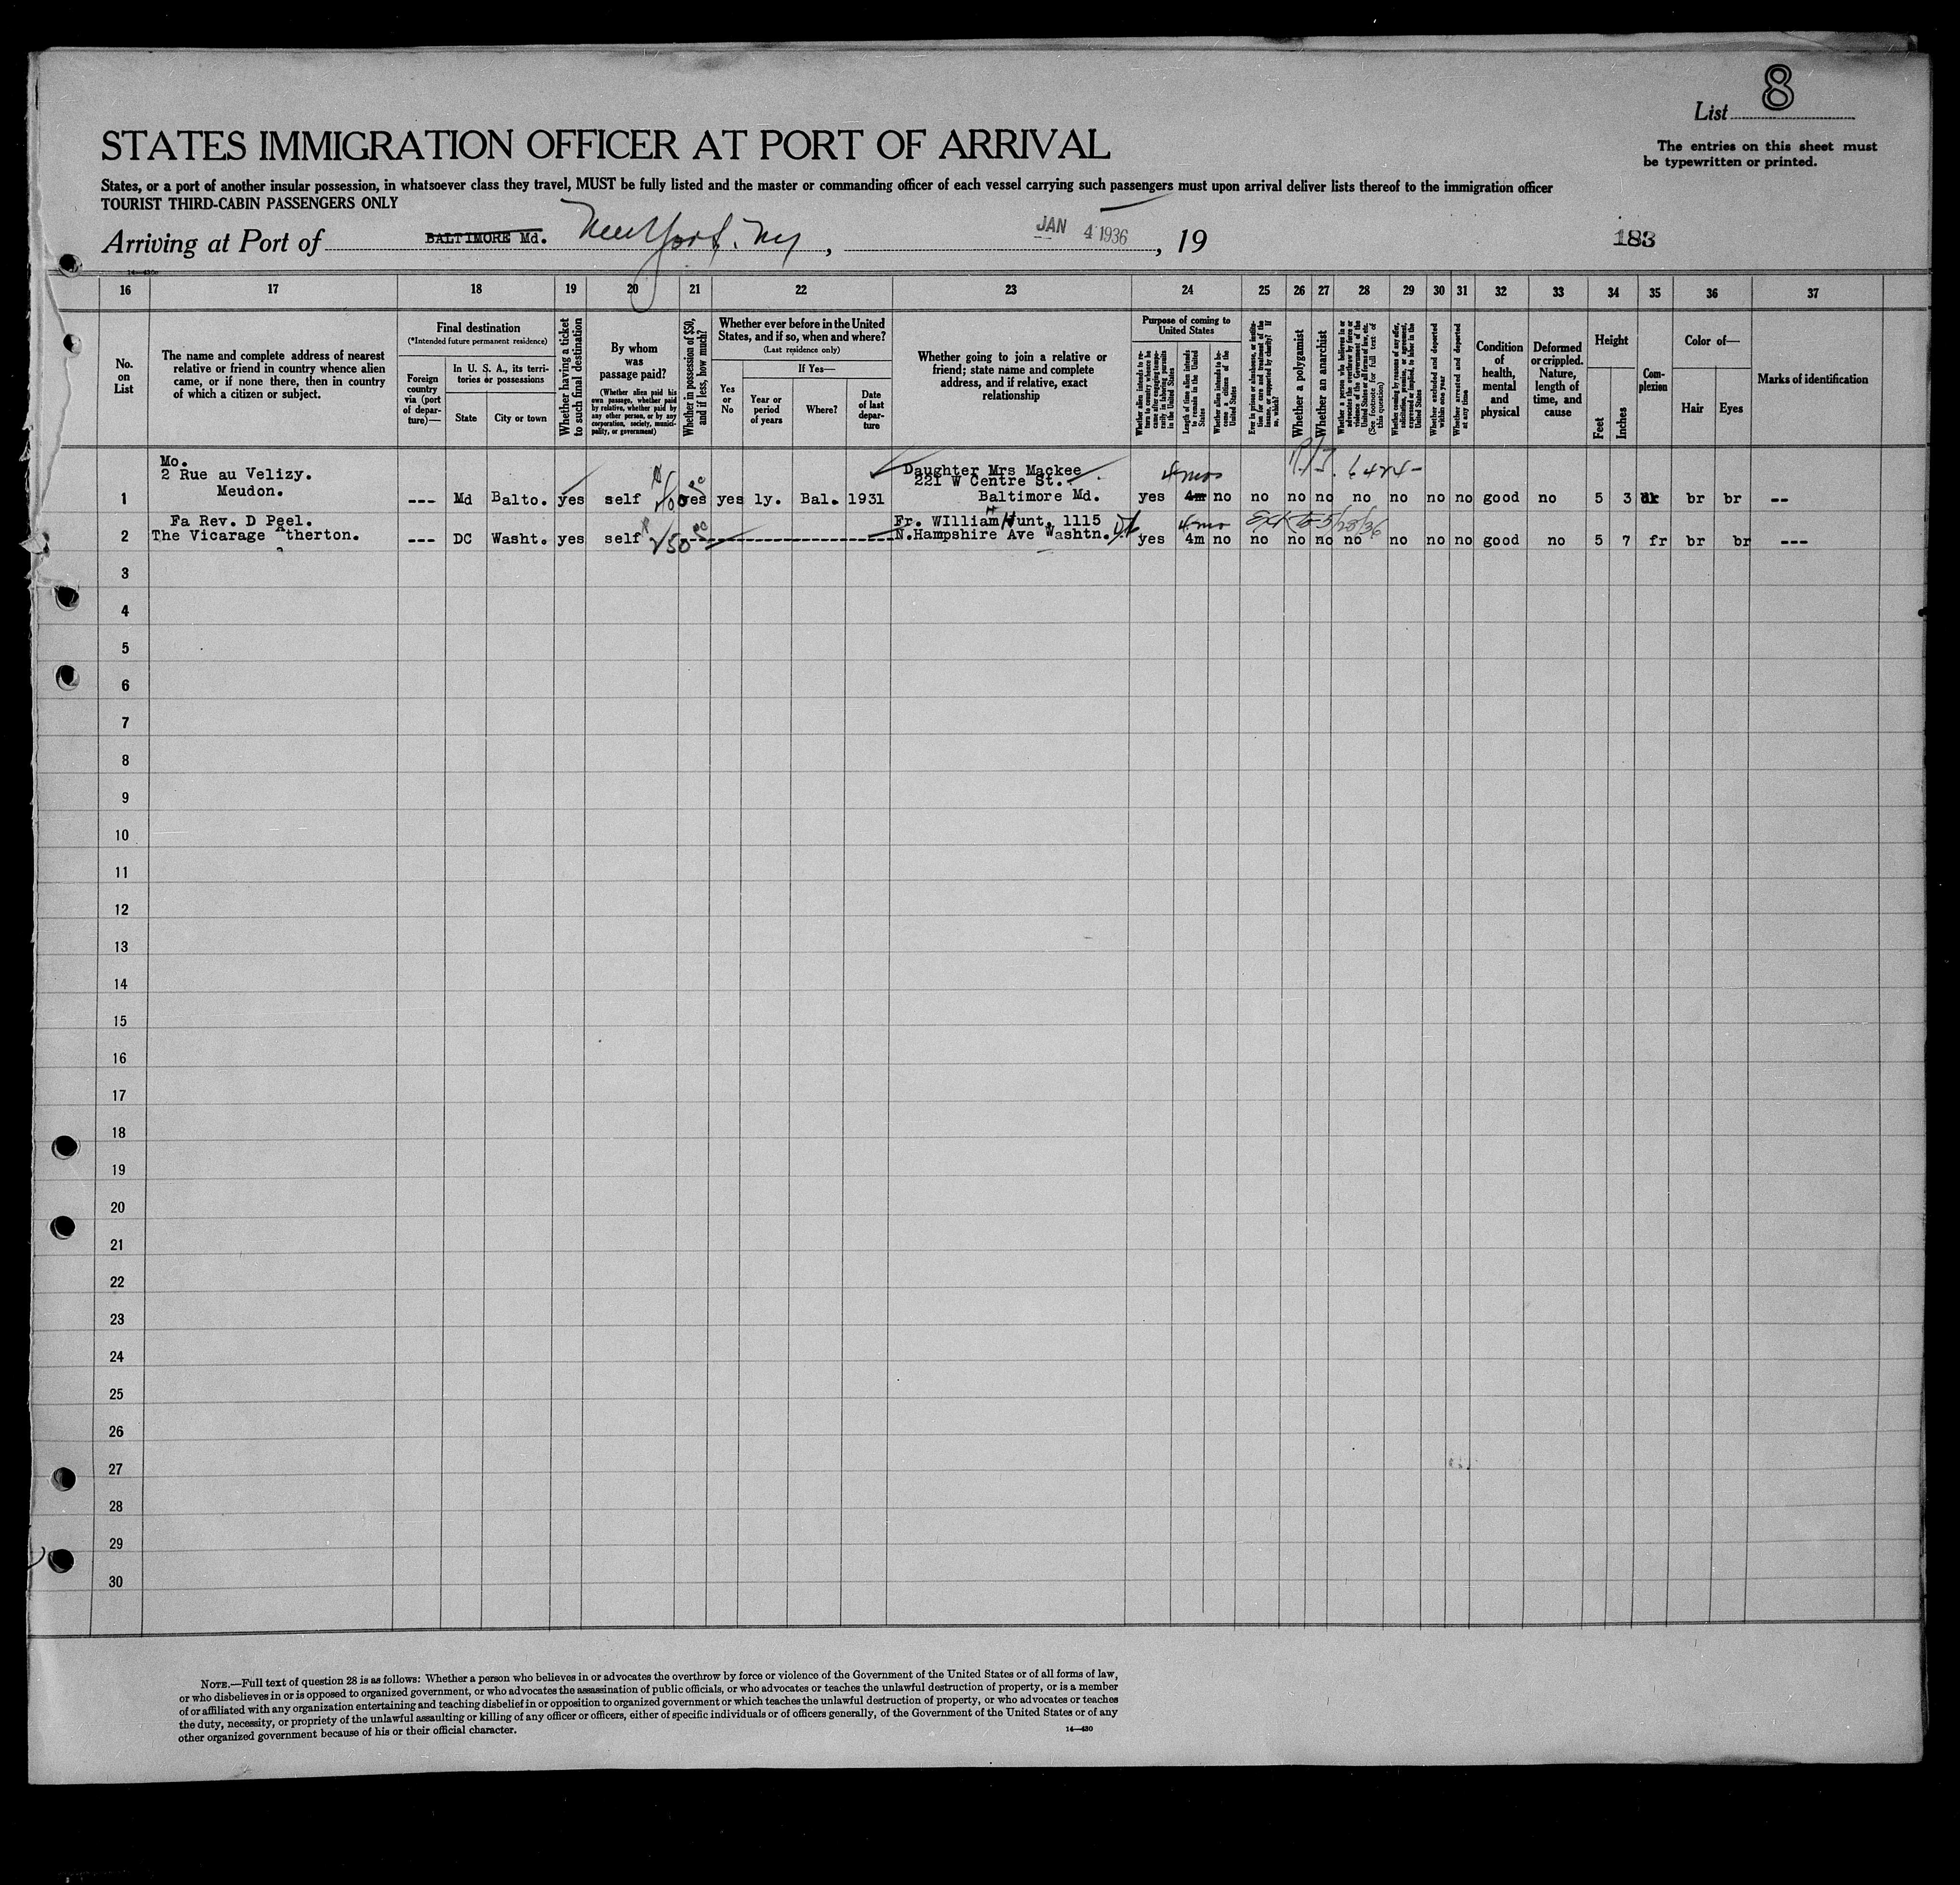 List 8
STATES IMMIGRATION OFFICER AT PORT OF ARRIVAL
The entries on this sheet must
be typewritten or printed.
States, or a port of another insular possession, in whatsoever class they travel, MUST be fully listed and the master or commanding officer of each vessel carrying such passengers must upon arrival deliver lists thereof to the immigration officer
TOURIST THIRD-CABIN PASSENGERS ONLY
Arriving at Port of BALTIMORE Md. New York. Ny, JAN 4 1936, 19
183
16 17 18 19 20 21 22 23 24 25 26 27 28 29 30 31 32 33 34 35 36 37
No.
on
List
The name and complete address of nearest
relative or friend in country whence alien
came, or if none there, then in country
of which a citizen or subject.
Final destination
(*Intended future permanent residence)
Foreign
country
via (port
of depar-
ture)—
In U. S. A., its terri-
tories or possessions
State
City or town
Whether having a ticket
to such final destination
By whom
was
passage paid?
(Whether alien paid his
own passage, whether paid
by relative, whether paid by
any other person, or by any
corporation, society, munici-
pality, or government)
Whether in possession of $50,
and if less, how much?
Whether ever before in the United
States, and if so, when and where?
(Last residence only)
Yes
or
No
If Yes—
Year or
period
of years
Where?
Date
of last
depar-
ture
Whether going to join a relative or
friend; state name and complete
address, and if relative, exact
relationship
Purpose of coming to
United States
Whether alien intends to re-
turn to country whence he
came after engaging tempo-
rarily in laboring pursuits
in the United States
Length of time alien intends
to remain in the United
States
Whether alien intends to be-
come a citizen of the
United States
Ever in prison or almshouse, or institu-
tion for care and treatment of the
insane, or supported by charity? If
so, which?
Whether a polygamist
Whether an anarchist
Whether a person who believes in or
advocates the overthrow by force or
violence of the Government of the
United States or all forms of law, etc.
(See footnote for full text of
this question)
Whether coming by reason of any offer,
solicitation, promise, or agreement,
expressed or implied, to labor in the
United States
Whether excluded and deported
within one year
Whether arrested and deported
at any time
Condition
of
health,
mental
and
physical
Deformed
or crippled.
Nature,
length of
time, and
cause
Height
Feet
Inches
Com-
plexion
Color of—
Hair
Eyes
Marks of identification
Mo.
2 Rue au Velizy.
Meudon.
Daughter Mrs Mackee
221 W Centre St.
4 mos
1 --- Md Balto. yes self yes yes ly. Bal. 1931 Baltimore Md. yes 4m no no no no no no no no good no 5 3 dk br br --
Fa Rev. D Peel.
Fr. WIlliam Hunt, 1115
4 mo
Ext to 5/28/36
2 The Vicarage Atherton. --- DC Washt. yes self N.Hampshire Ave Washtn. yes 4m no no no no no no no no good no 5 7 fr br br ---
3
4
5
6
7
8
9
10
11
12
13
14
15
16
17
18
19
20
21
22
23
24
25
26
27
28
29
30
NOTE.—Full text of question 28 is as follows: Whether a person who believes in or advocates the overthrow by force or violence of the Government of the United States or of all forms of law,
or who disbelieves in or is opposed to organized government, or who advocates the assassination of public officials, or who advocates or teaches the unlawful destruction of property, or is a member
of or affiliated with any organization entertaining and teaching disbelief in or opposition to organized government or which teaches the unlawful destruction of property, or who advocates or teaches
the duty, necessity, or propriety of the unlawful assaulting or killing of any officer or officers, either of specific individuals or of officers generally, of the Government of the United States or of any
other organized government because of his or their official character.
14—430